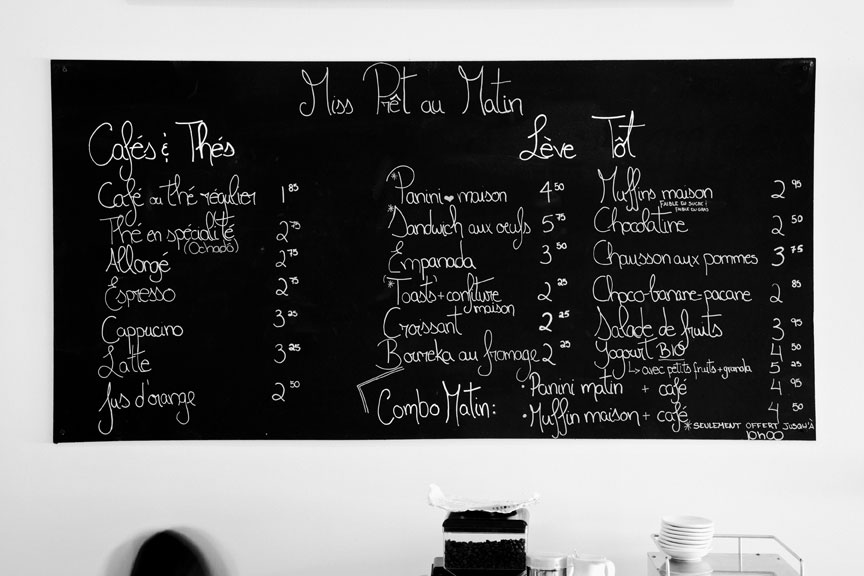 Miss Prêt au Matin
Cafés & Thés
Café ou thé régulier 1 85
Thé en spécialité 2 75
(Ochado)
Allongé 2 75
Espresso 2 75
Cappucino 3 25
Latte 3 25
Jus d'orange 2 50
Lève Tôt
*Panini ♥ maison 4 50
*Sandwich aux oeufs 5 75
Empanada 3 50
*Toasts + confiture 2 25
maison
Croissant 2 25
Bourreka au fromage 2 25
Muffins maison 2 95
FAIBLE EN SUCRE &
FAIBLE EN GRAS
Chocolatine 2 50
Chausson aux pommes 3 75
Choco-banane-pacane 2 85
Salade de fruits 3 95
Yogourt BIO 4 50
↳ avec petits fruits + granola 5 25
Combo Matin:
• Panini matin + café 4 95
• Muffin maison + café 4 50
* SEULEMENT OFFERT JUSQU'À
10h00